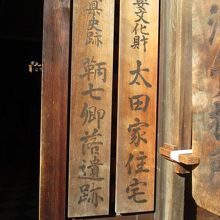 要文化財
太田家住宅
県史跡
鞆七卿落遺跡